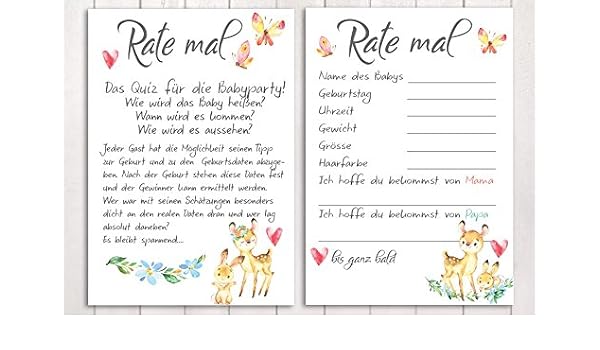 Rate mal
Das Quiz für die Babyparty!
Wie wird das Baby heißen?
Wann wird es kommen?
Wie wird es aussehen?
Jeder Gast hat die Möglichkeit seinen Tipp
zur Geburt und zu den Geburtsdaten abzuge-
ben. Nach der Geburt stehen diese Daten fest
und der Gewinner kann ermittelt werden.
Wer war mit seinen Schätzungen besonders
dicht an den realen Daten dran und wer lag
absolut daneben?
Es bleibt spannend...
Rate mal
Name des Babys
Geburtstag
Uhrzeit
Gewicht
Grösse
Haarfarbe
Ich hoffe du bekommst von Mama
Ich hoffe du bekommst von Papa
bis ganz bald